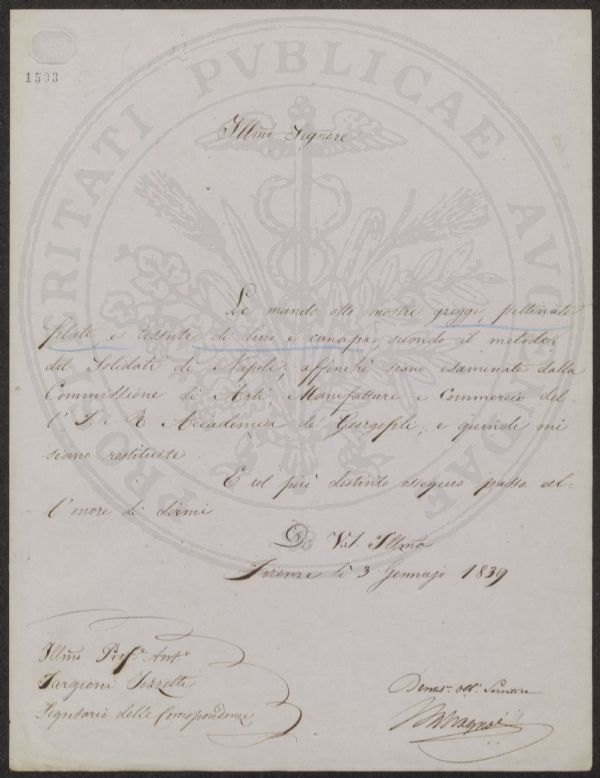 1503
PROSPERITATI PVBLICAE AVGENDAE
Illmo Signore
Le mando otto mostre gregge, pettinate
filate e tessute di lino e canapa, secondo il metodo
del Solidati di Napoli, affinchè siano esaminate dalla
Commissione di Arti Manifatture e Commercio del-
l' I. e R. Accademia de Georgofili, e quindi mi
siano restituite.
E col più distinto ossequio passo al-
l' onore di dirmi
Di V.S. Illma
Firenze li 3 Gennajo 1839
Illmo Profr. Anto
Targioni Tozzetti
Segretario delle Corrispondenze
Devmo. Obb. Servitore